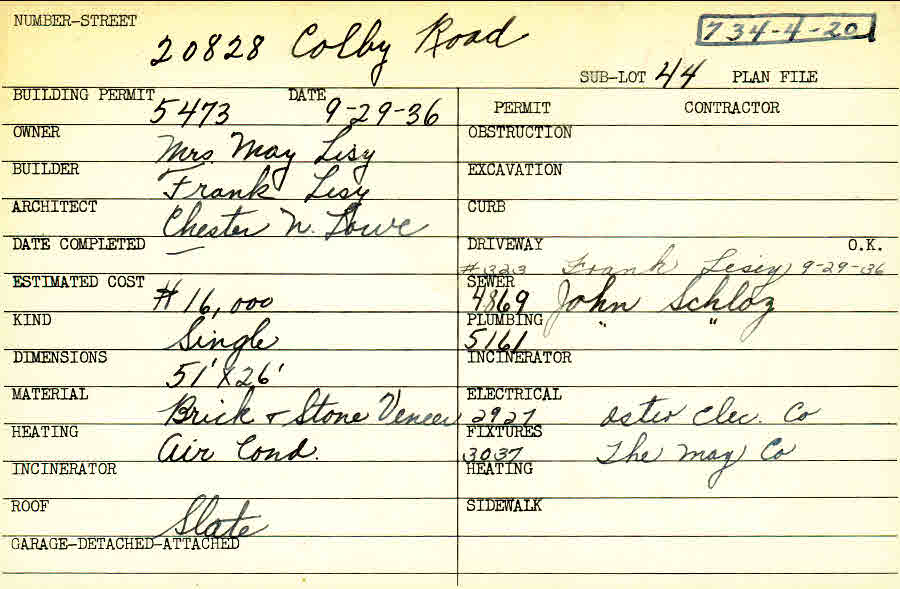 NUMBER-STREET
20828 Colby Road
734-4-20
SUB-LOT 44 PLAN FILE
BUILDING PERMIT 5473 DATE 9-29-36
PERMIT CONTRACTOR
OWNER Mrs. May Lisy
OBSTRUCTION
BUILDER Frank Lisy
EXCAVATION
ARCHITECT Chester N. Lowe
CURB
DATE COMPLETED —
DRIVEWAY O.K.
#323 Frank Lesiy 9-29-36
ESTIMATED COST $16,000
SEWER 4869 John Schloz
KIND Single
PLUMBING 5161 " "
DIMENSIONS 51' X 26'
INCINERATOR
MATERIAL Brick & Stone Veneer
ELECTRICAL 2927 Elec. Co
HEATING Air Cond.
FIXTURES 3037 The May Co
INCINERATOR
HEATING
ROOF Slate
SIDEWALK
GARAGE-DETACHED-ATTACHED